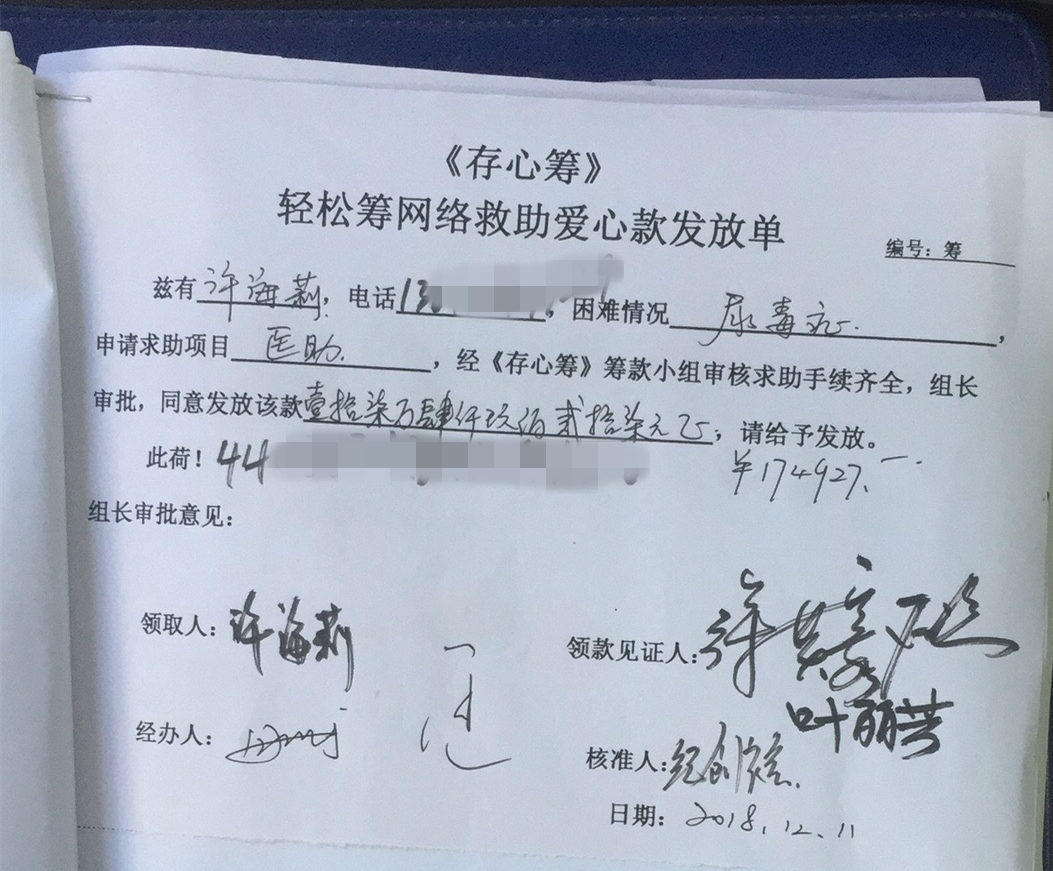 《存心筹》
轻松筹网络救助爱心款发放单
编号：筹
兹有许海莉，电话13，困难情况尿毒症，
申请求助项目医助，经《存心筹》筹款小组审核求助手续齐全，组长
审批，同意发放该款壹拾柒万肆仟玖佰贰拾柒元正，请给予发放。
此荷！44 ￥174927.一
组长审批意见：
领取人：许海莉 领款见证人：许
叶丽芸
经办人：
核准人：纪创
日期：2018.12.11